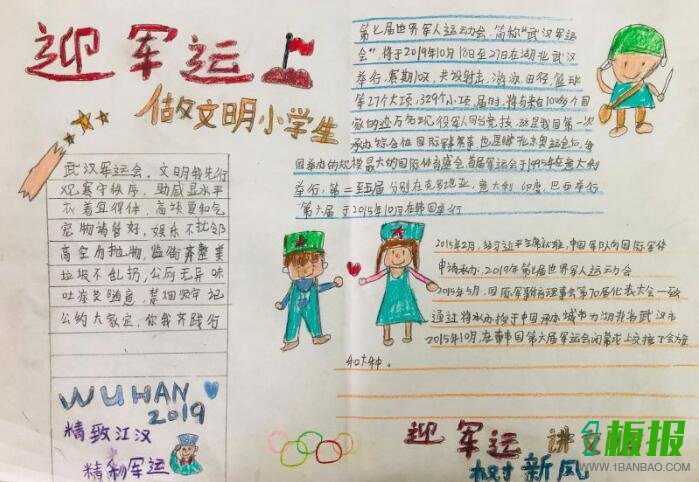 迎军运
做文明小学生
武汉军运会，文明我先行
观赛守秩序，助威显水平
衣着宜得体，言谈要和气
宠物请管好，娱乐不扰邻
高空勿抛物，监街齐整美
垃圾不乱扔，公厕无异味
吐痰莫随意，禁烟须牢记
公约大家定，你我齐践行
WUHAN
2019
精致江汉
精彩军运
第七届世界军人运动会，简称“武汉军运
会”，将于2019年10月18日至27日在湖北武汉
举行，赛期10天，共设射击、游泳、田径、篮球
等27个大项，329个小项。届时，将有来自100多个国
家的近万名现役军人同台竞技，这是我国第一次
承办综合性国际军事赛事，也是继北京奥运会后，中
国举办的规模最大的国际体育盛会。首届军运会于1995年在意大利
举行，第二至五届分别在克罗地亚，意大利，印度，巴西举行
第六届于2015年10月在韩国举行
2015年2月，经习近平主席批准，中国军队向国际军体
申请承办，2019年第七届世界军人运动会
2015年5月，国际军事体育理事会第70届代表大会一致
通过将承办授予中国承办城市为湖北省武汉市
2015年10月，在韩国第六届军运会闭幕式上交接了会旗
和火种。
迎军运 讲文
树新风
板报
WWW.1BANBAO.COM